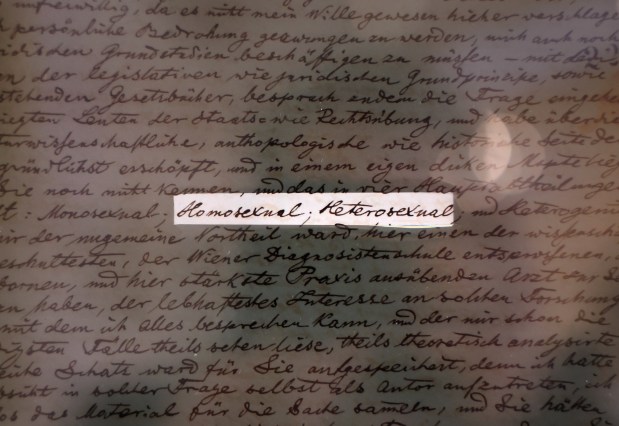 unfreiwillig, da es nicht mein Wille gewesen hieher verschlage
persönliche Bedrohung gezwungen zu werden, mich auch noch
ridischen Grundstudien beschäffigen zu müssen – mit
n der legislativen wie juridischen Grundprincipe, sowie
stehenden Gesetzbücher, besprach endem die Frage eingehe
iegten Leuten der Staats wie Rechtsübung, und habe
turwissenschaftliche, anthopologische wie historische Seite de
gründlichst erschöpft, und in einem eigen dicken
noch nicht kennen, und das in vier Hauptabtheilunge
t: Monosexual; Homosexual; Heterosexual; und Heterogeni
mir der ungemeine Vortheil ward, hier einen der
, der Wiener Diagnosistenschule entsprossenen,
bornen, und hier stärkste Praxis ausübenden Arzt zur
en haben, der lebhaftestes Interesse an solchen Forschung
mit dem ich alles besprechen kann, und der mir schon die
Fälle theils sehen liess, theils theoretisch analysirte
liche Schatz ward für Sie aufgespeichert, denn ich hatte
in solcher Frage selbst als Autor aufzutreten, ich
los das Material für die Sache sameln, und Sie hätten